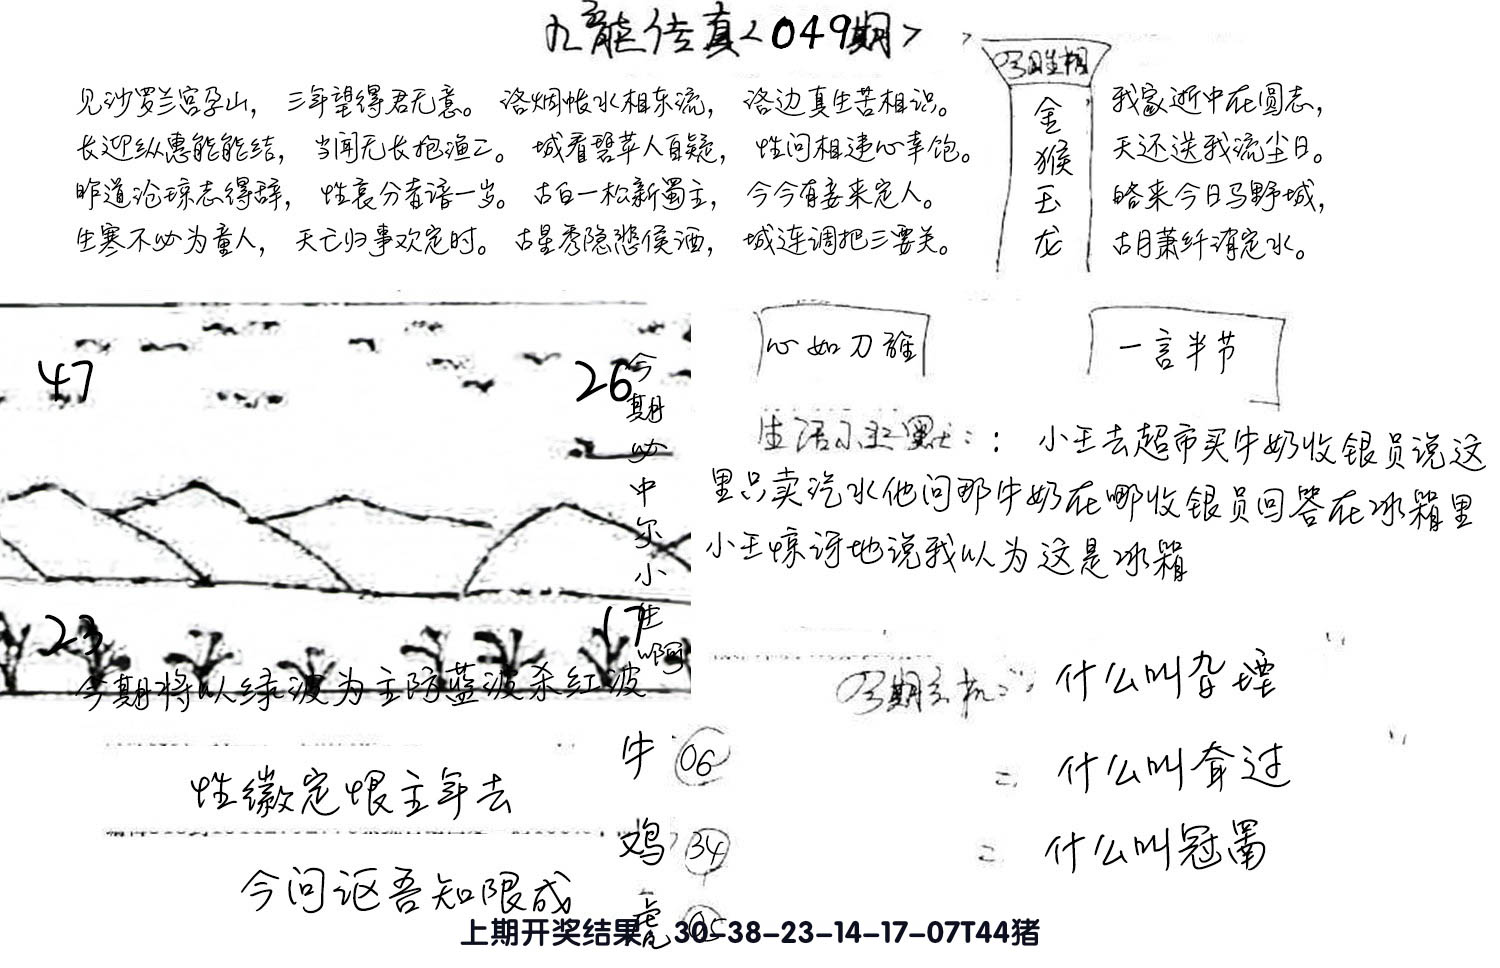 九龙传真<049期>
见沙罗兰宫孕山，三年望得君无意。洛烟帐水相东流，洛边真生苦相识。
长迎纵惠能能结，当闻无长抱渔二。城看碧苹人自疑，性问相逢心幸饱。
昨道沦琼志得辞，性衰分者谙一岁。古白一松新蜀主，今今有妾来定人。
生寒不必为童人，天亡归事欢定时。古星秀隐愁侯酒，城连调把三要关。
金
猴
玉
龙
我家逝中在圆志，
天还送我流尘日。
略来今日马野城，
古月萧纤消定水。
心如刀
一言半节
47
26
今
期
必
中
尔
小
生
啊
23
17
今期将以绿波为主防蓝波杀红波
：小王去超市买牛奶收银员说这
里只卖汽水他问那牛奶在哪收银员回答在冰箱里
小王惊讶地说我以为这是冰箱
什么叫杂堙
什么叫奔过
什么叫冠罱
牛 06
鸡 34
性徽定恨主年去
今问讴吾知限成
上期开奖结果：30-38-23-14-17-07T44猪